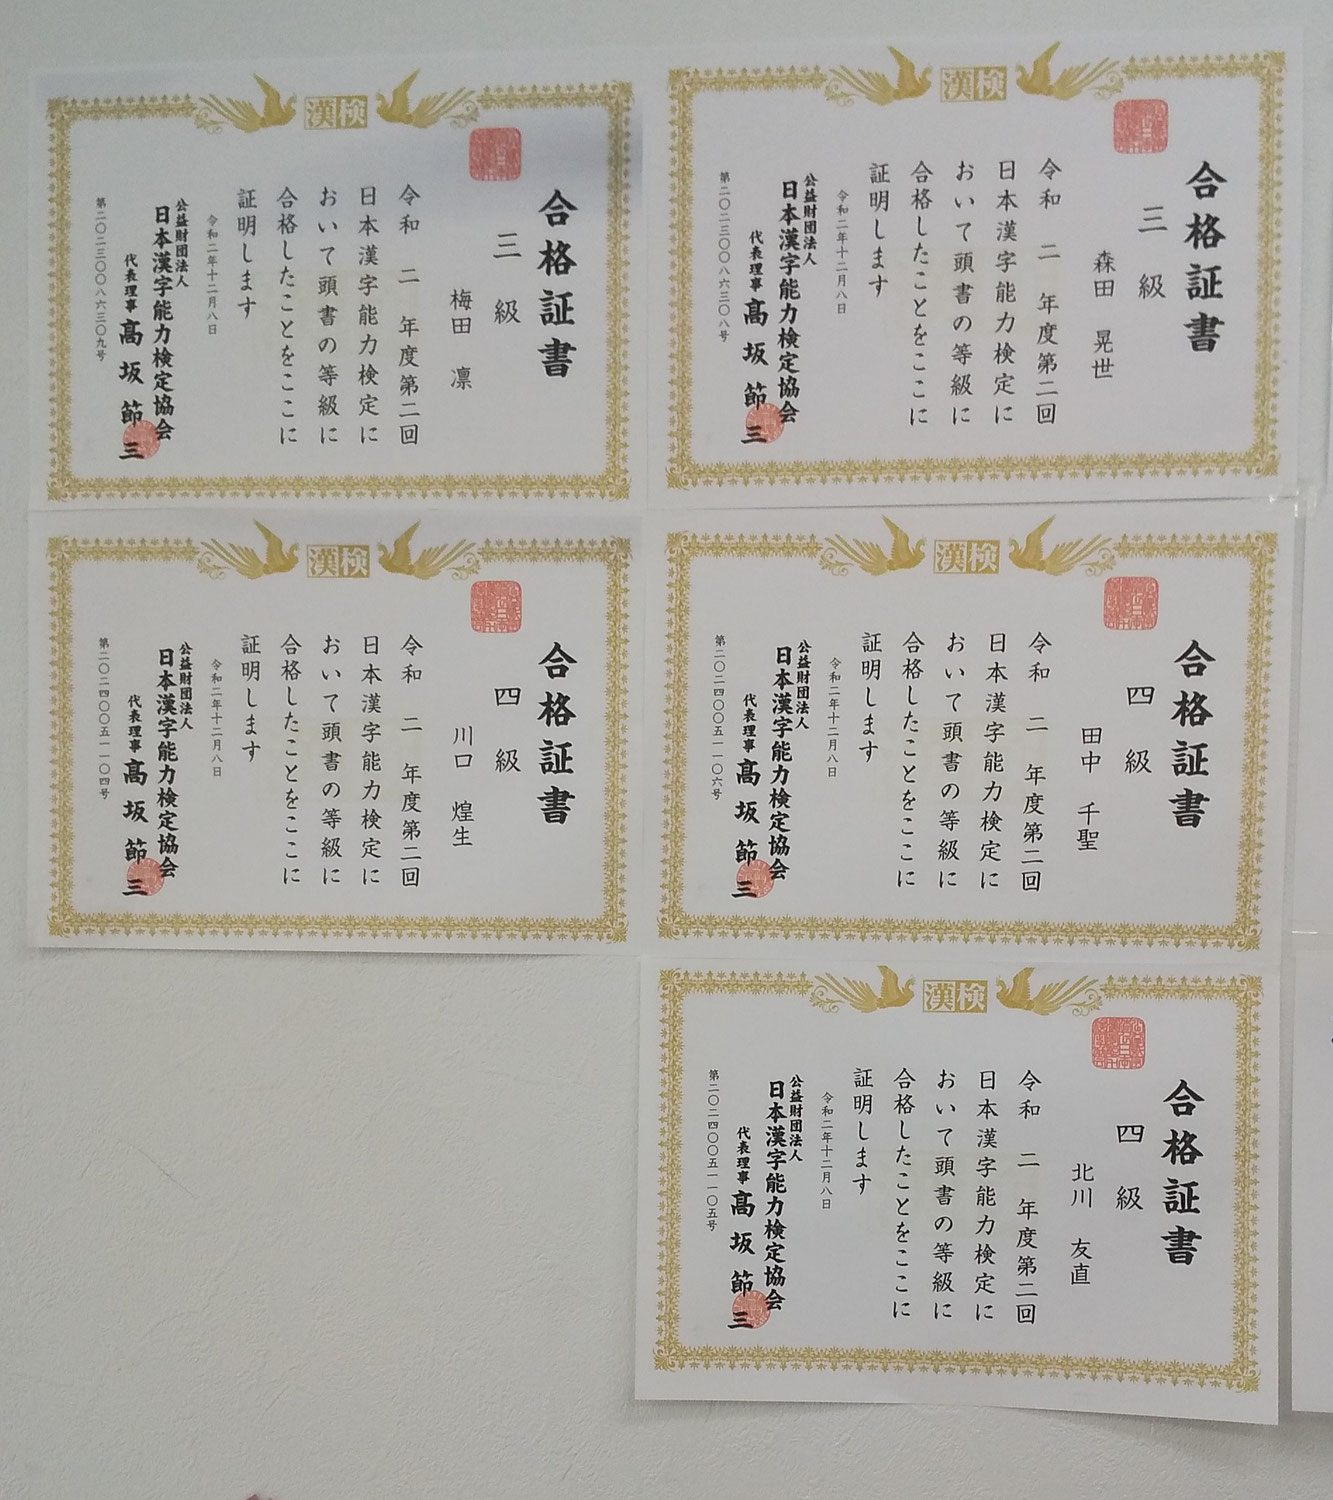 漢検
合格証書
三 級
梅田 凛
令和 二 年度第二回
日本漢字能力検定に
おいて頭書の等級に
合格したことをここに
証明します
令和二年十二月八日
公益財団法人
日本漢字能力検定協会
代表理事 髙坂 節三
第二〇二三〇〇八六三〇九号
漢検
合格証書
三 級
森田 晃世
令和 二 年度第二回
日本漢字能力検定に
おいて頭書の等級に
合格したことをここに
証明します
令和二年十二月八日
公益財団法人
日本漢字能力検定協会
代表理事 髙坂 節三
第二〇二三〇〇八六三〇八号
漢検
合格証書
四 級
川口 煌生
令和 二 年度第二回
日本漢字能力検定に
おいて頭書の等級に
合格したことをここに
証明します
令和二年十二月八日
公益財団法人
日本漢字能力検定協会
代表理事 髙坂 節三
第二〇二四〇〇五一一〇四号
漢検
合格証書
四 級
田中 千聖
令和 二 年度第二回
日本漢字能力検定に
おいて頭書の等級に
合格したことをここに
証明します
令和二年十二月八日
公益財団法人
日本漢字能力検定協会
代表理事 髙坂 節三
第二〇二四〇〇五一一〇六号
漢検
合格証書
四 級
北川 友直
令和 二 年度第二回
日本漢字能力検定に
おいて頭書の等級に
合格したことをここに
証明します
令和二年十二月八日
公益財団法人
日本漢字能力検定協会
代表理事 髙坂 節三
第二〇二四〇〇五一一〇五号